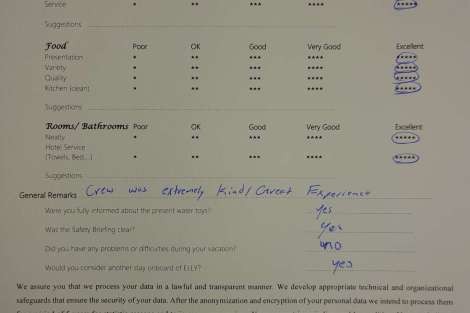 Service * ** *** **** *****
Suggestions
Food Poor OK Good Very Good Excellent
Presentation * ** *** **** *****
Variety * ** *** **** *****
Quality * ** *** **** *****
Kitchen (clean) * ** *** **** *****
Suggestions
Rooms/ Bathrooms Poor OK Good Very Good Excellent
Neatly * ** *** **** *****
Hotel Service
(Towels, Bed...) * ** *** **** *****
Suggestions
General Remarks Crew was extremely Kind/ Great Experience
Were you fully informed about the present water toys? yes
Was the Safety Briefing clear? yes
Did you have any problems or difficulties during your vacation? no
Would you consider another stay onboard of ELLY? yes
We assure you that we process your data in a lawful and transparent manner. We develop appropriate technical and organizational
safeguards that ensure the security of your data. After the anonymization and encryption of your personal data we intend to process them